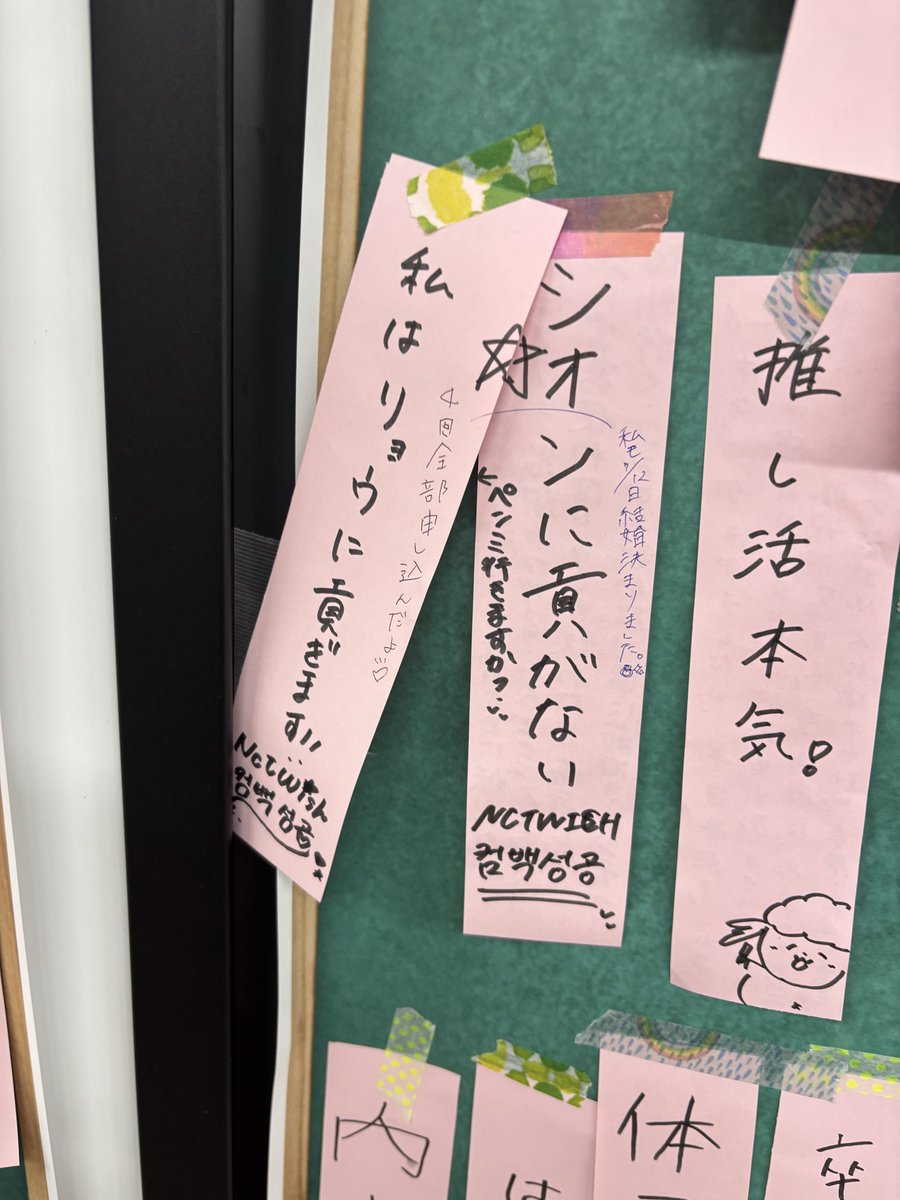 推し活本気!
シオンに貢がない
私も7/12日結婚決まりました。
ペンミ行きますか?
NCTWISH
컴백성공
私はリョウに貢ぎます!!
4回全部申し込んだよ
NCTWish
컴백 성공
内
は
体
卒